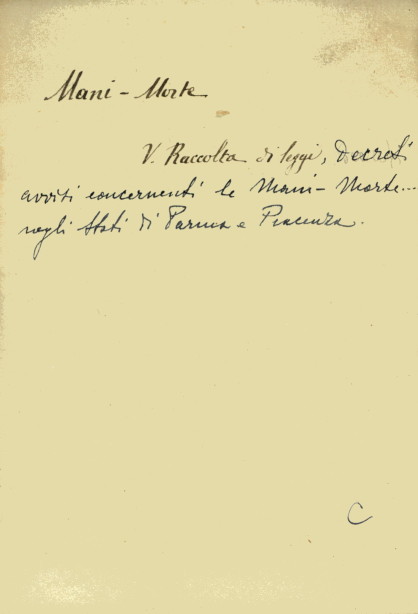 Mani - Morte
V. Raccolta di leggi, decreti
avvisi concernenti le Mani - Morte...
negli Stati di Parma e Piacenza.
C